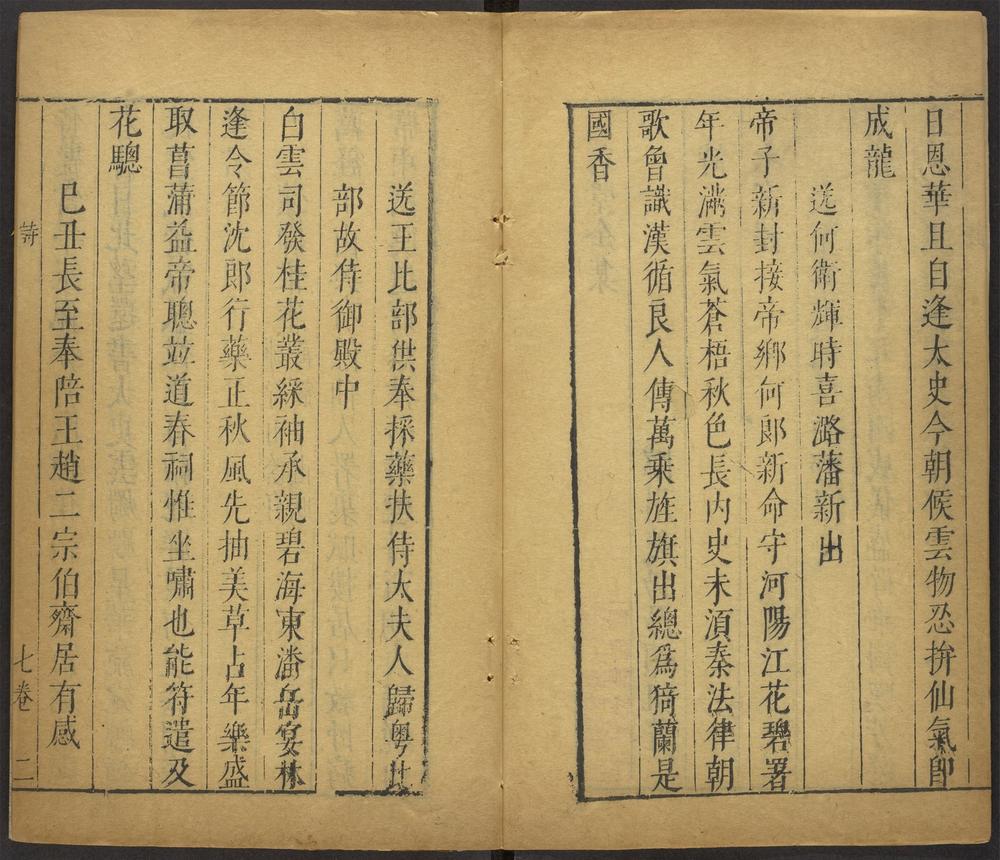 日恩華且自逢太史今朝候雲物忍拚仙氣卽
成龍
送何衛輝時喜潞藩新出
帝子新封接帝鄉何郞新命守河陽江花碧署
年光滿雲氣蒼梧秋色長内史未湏秦法律朝
歌曾識漢循良人傳萬乘旌旗出總爲猗蘭是
國香
送王比部供奉採藥扶侍太夫人歸粤比
部故侍御殿中
白雲司發桂花叢綵袖承親碧海東潘岳宴林
逢令節沈郞行藥正秋風先抽美草占年樂盛
取菖蒲益帝聰竝道春祠惟坐嘯也能符遣及
花驄
巳丑長至奉陪王趙二宗伯齋居有感
詩 七卷 二